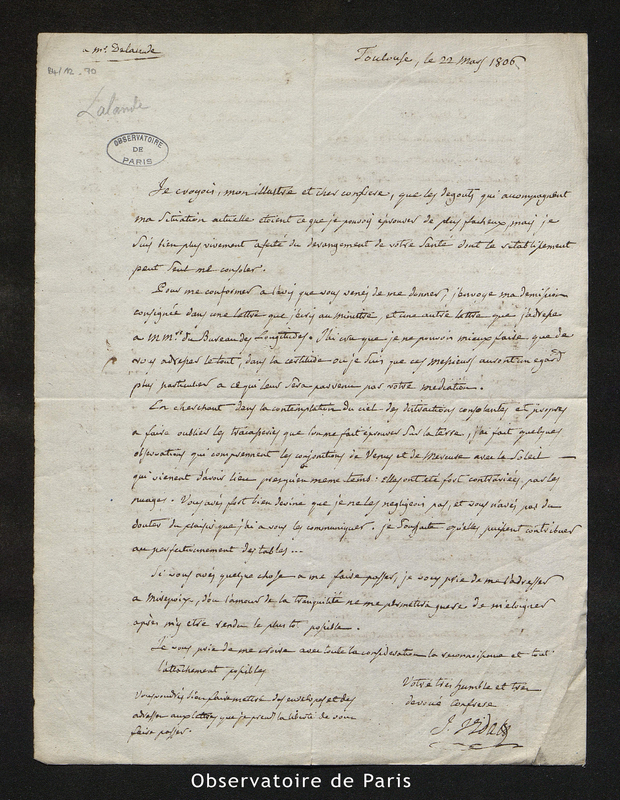 a Mr. Delalande
Toulouse, le 22 Mars 1806
84/12.70
Lalande
OBSERVATOIRE
DE
PARIS
Je croyois, mon illustre et cher confrere, que les degouts qui accompagnent
ma situation actuelle etoient ce que je pouvois eprouver de plus facheux, mais je
suis bien plus vivement afecté du derangement de votre santé dont le retablissement
peut seul me consoler.
Pour me conformer a l'avis que vous venés de me donner, j'envoye ma demission
consignée dans une lettre que j'ecris au ministre, et une autre lettre que j'adresse
a MMrs. du Bureau des Longitudes. J'ai cru que je ne pouvois mieux faire que de
vous adresser le tout, dans la certitude ou je suis que ces messieurs auront un egard
plus particulier a ce qui leur sera parvenu par votre mediation.
En cherchant dans la contemplation du ciel des distractions consolantes et propres
a faire oublier les tracasseries que l'on me fait eprouver sur la terre, j'ai fait quelques
observations qui comprennent les conjonctions de Venus et de Mercure avec le Soleil
qui vienent d'avoir lieu presqu'en meme temps. Elles ont eté fort contrariées, par les
nuages. Vous avés fort bien deviné que je ne les negligerois pas, et vous n'avés pas du
douter du plaisir que j'ai a vous les communiquer. je souhaite qu'elles puissent contribuer
au perfectionnement des tables...
Si vous avés quelque chose a me faire passer, je vous prie de me l'adresser
a Mirepoix, d'ou l'amour de la tranquilité ne me permettra guere de m'eloigner
après m'y etre rendu le plus tot possible.
Je vous prie de me croire avec toute la consideration la reconnoissance et tout
l'attachement possibles
Votre tres humble et tres
devoué confrere
J. Vidal
Vous voudrés bien faire mettre des envelopes et des
adresses aux lettres que je prends la liberté de vous
faire passer.
Observatoire de Paris